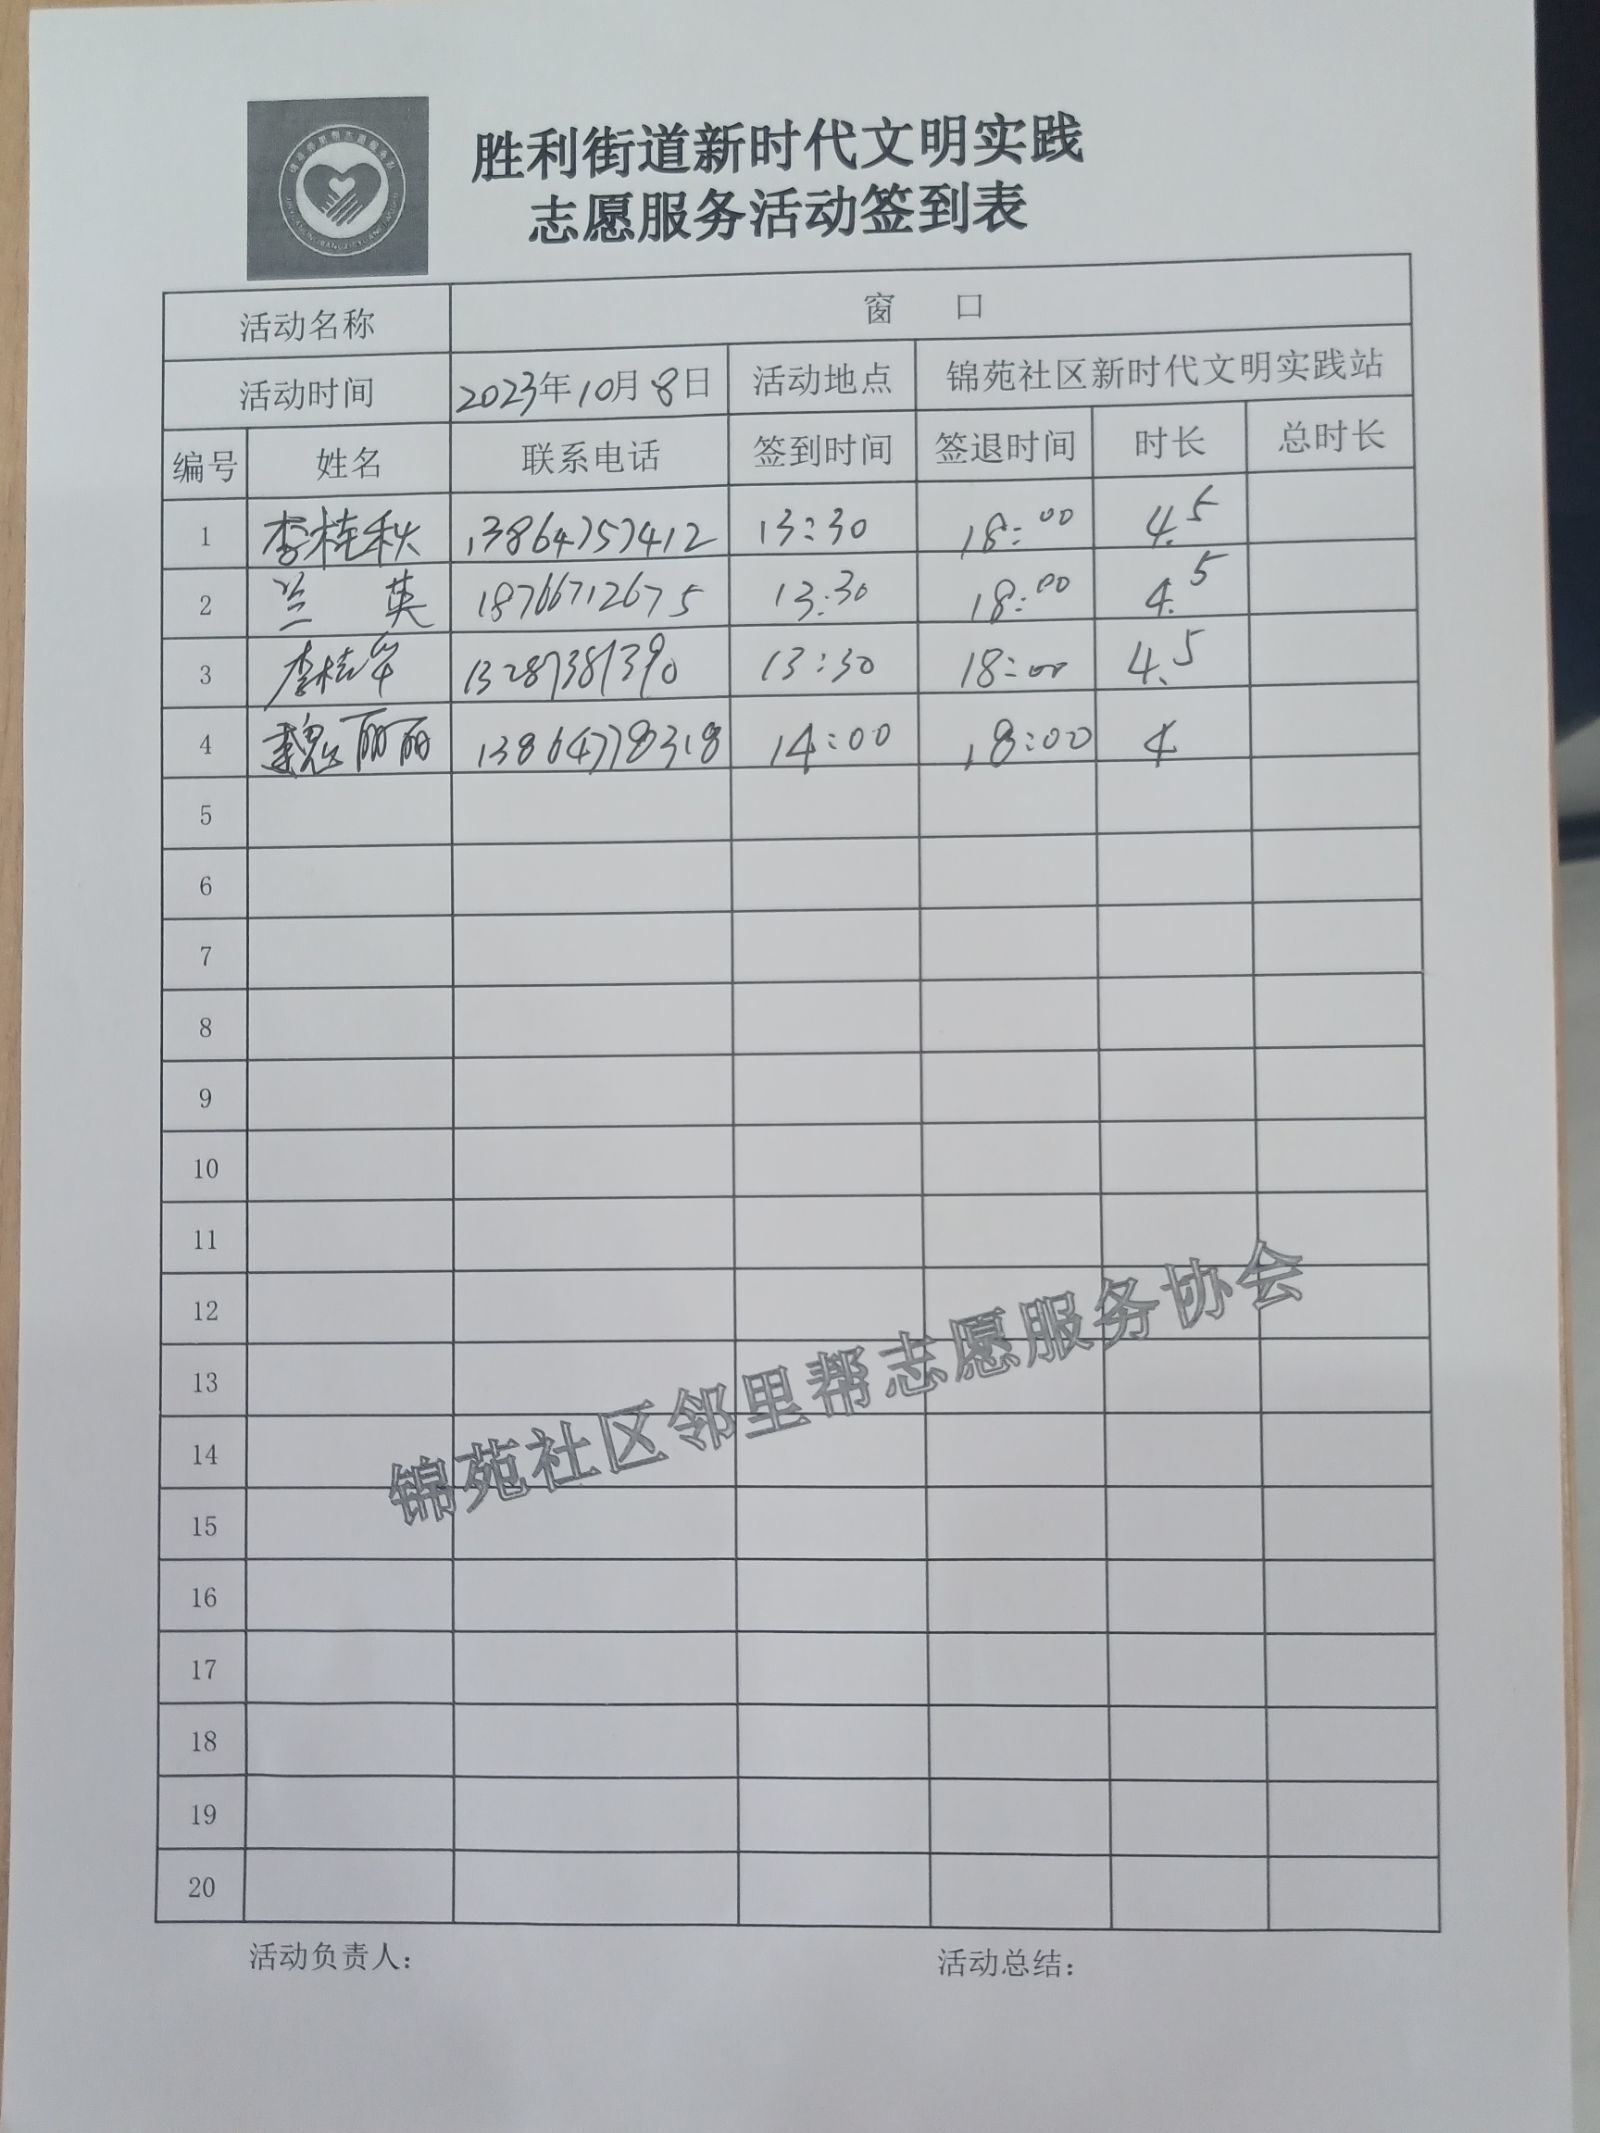 胜利街道新时代文明实践
志愿服务活动签到表
活动名称 窗 口
活动时间 2023年10月8日 活动地点 锦苑社区新时代文明实践站
编号 姓名 联系电话 签到时间 签退时间 时长 总时长
1 李桂秋 13864757412 13:30 18:00 4.5
2 兰 英 18766712675 13:30 18:00 4.5
3 李桂华 13287381390 13:30 18:00 4.5
4 魏丽丽 13864778318 14:00 18:00 4
5
6
7
8
9
10
11
12
13
14
15
16
17
18
19
20
锦苑社区邻里帮志愿服务协会
活动负责人: 活动总结: